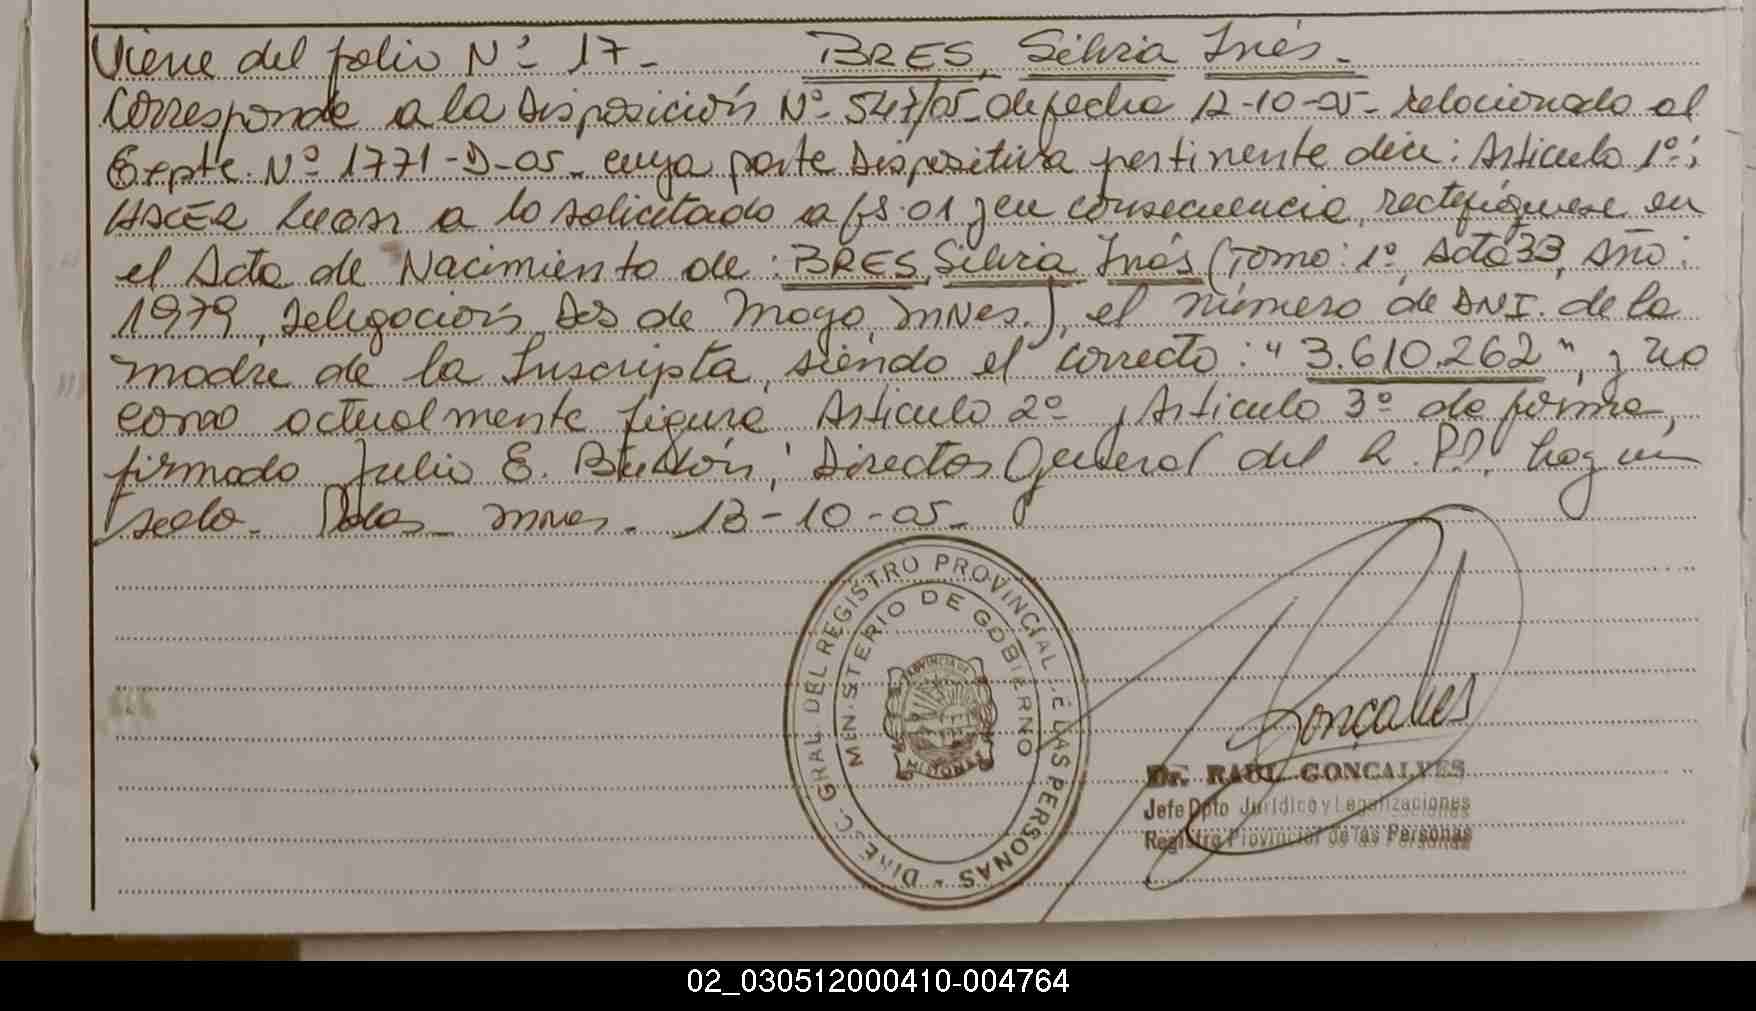 Viene del folio Nº 17- BRES, Silvia Inés.-
Corresponde a la Disposición Nº 547/05- de fecha 12-10-05- relacionado al
Expte. Nº 1771-D-05- cuya parte Dispositiva pertinente dice: Artículo 1º:
HACER lugar a lo solicitado a fs. 01 y en consecuencia, rectifíquese en
el Acta de Nacimiento de: BRES, Silvia Inés (Tomo: 1º, Acta 33, Año:
1979, Delegación Dos de Mayo, Mnes.), el número de DNI. de la
madre de la Inscripta, siendo el correcto: "3.610.262", y no
como actualmente figura. Artículo 2º y Artículo 3º de forma,
firmado Julio E. Director General del R.P.P. hay un
sello. Pdas. Mnes. 13-10-05-
DIREC. GRAL. DEL REGISTRO PROVINCIAL DE LAS PERSONAS
MINISTERIO DE GOBIERNO
PROVINCIA DE
MISIONES
Gonçalves
Dr. RAUL GONCALVES
Jefe Dpto Jurídico y Legalizaciones
Registro Provincial de las Personas
02_030512000410-004764